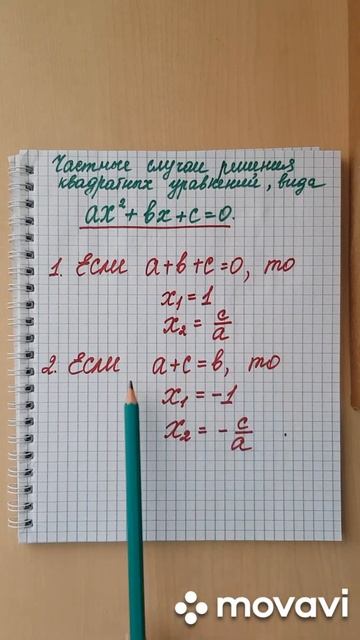 Частные случаи решения
квадратных уравнений, вида
ax² + bx + c = 0.
1. Если a + b + c = 0, то
x₁ = 1
x₂ = c/a
2. Если a + c = b, то
x₁ = -1
x₂ = - c/a
movavi